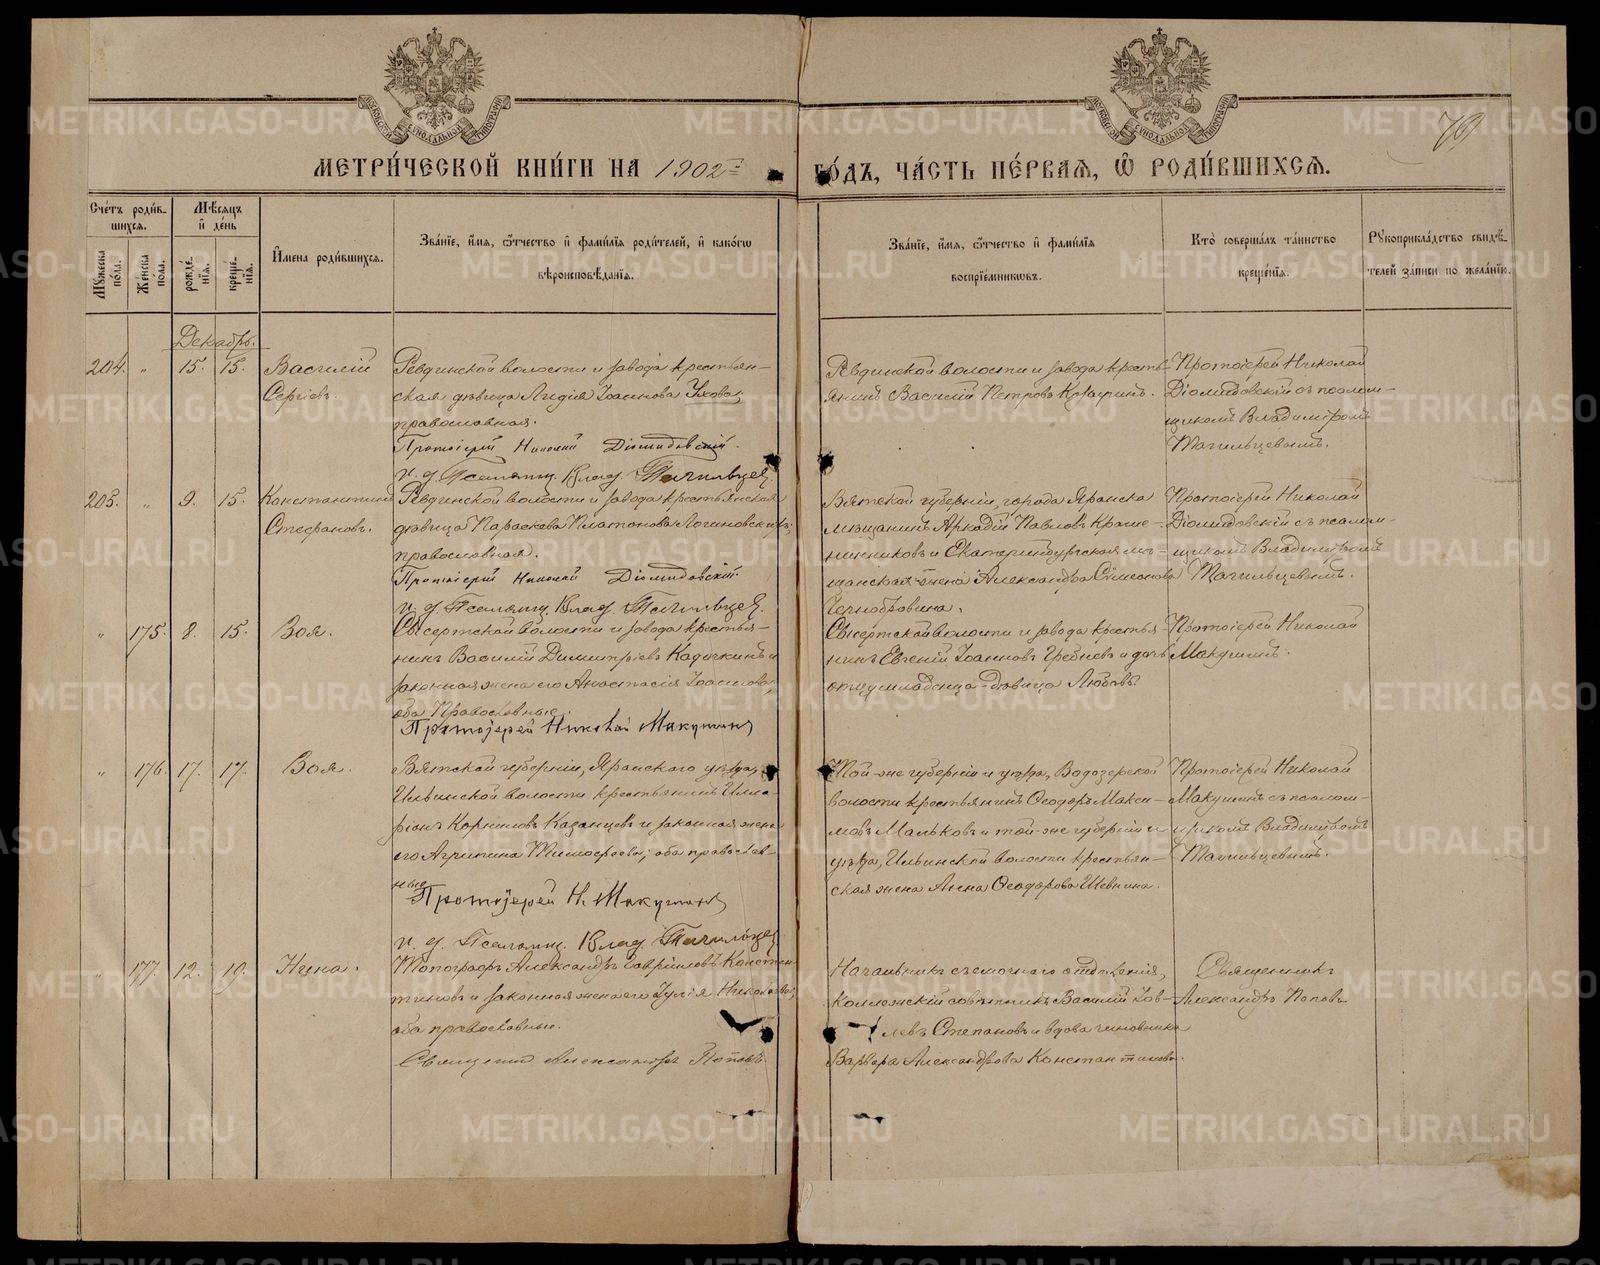 МОСКОВСКОЙ СѴНОДАЛЬНОЙ ТИПОГРАФІИ
МОСКОВСКОЙ СѴНОДАЛЬНОЙ ТИПОГРАФІИ
79
МЕТРИ́ЧЕСКОЙ КНИ́ГИ НА 1902й ГО́ДЪ, ЧА́СТЬ ПЕ́РВАЯ, Ѽ РОДИ́ВШИХСЯ.
Сче́тъ роди́в-
шихся.
Му́жеска по́ла.
Же́нска по́ла.
Мѣ́сяцъ и де́нь
рожде́нія.
креще́нія.
И́мена роди́вшихся.
Зва́ніе, и́мя, ѻ́тчество и фами́лія роди́телей, и како́гѡ
вѣроисповѣ́данія.
Зва́ніе, и́мя, ѻ́тчество и фами́лія
воспріе́мниковъ.
Кто̀ соверша́лъ та́инство
креще́нія.
Рꙋкоприкла́дство свидѣ́-
телей за́писи по жела́нію.
Декабрь.
204. " 15. 15. Василій
Сергіевъ.
Ревдинской волости и завода крестьян-
ская дѣвица Лидія Іоаннова Ухова,
православная.
Протоіерей Николай Діомидовскій.
и. д. Псаломщ. Влад. Тагильцев
Ревдинской волости и завода кресть-
янинъ Василій Петровъ
Протоіерей Николай
Діомидовскій съ псалом-
щикомъ Владиміромъ
Тагильцевымъ.
205. " 9. 15. Константинъ
Стефановъ.
Ревдинской волости и завода крестьянская
дѣвица Параскева Платонова
православная.
Протоіерей Николай Діомидовскій.
и. д. Псаломщ. Влад. Тагильцев.
Вятской губерніи, города Яранска
мѣщанинъ Аркадій Павловъ Краше-
нинниковъ и Екатеринбургская мѣ-
щанская жена Александра Симеонова
Чернобровина.
Протоіерей Николай
Діомидовскій съ псалом-
щикомъ Владиміромъ
Тагильцевымъ.
" 175. 8. 15. Зоя.
Сысертской волости и завода крестья-
нинъ Василій Димитріевъ Кадочкинъ и
законная жена его Анастасія Іоаннова,
оба Православные.
Протоіерей Николай Макушинъ
Сысертской волости и завода крестья-
нинъ Евгеній Іоанновъ Гребневъ и дочь
отцу младенца - дѣвица Любовь.
Протоіерей Николай
Макушинъ.
" 176. 17. 17. Зоя.
Вятской губерніи, Яранскаго уѣзда,
Ильинской волости крестьянинъ Илла-
ріонъ Корниловъ Казанцевъ и законная жена
его Агрипина Тимофеева; оба православ-
ные
Протоіерей Н. Макушинъ
и. д. Псаломщ. Влад. Тагильцев
Той-же губерніи и уѣзда, Водозерской
волости крестьянинъ Ѳеодоръ Макси-
мовъ Мальковъ и той-же губерніи и
уѣзда, Ильинской волости крестьян-
ская жена Анна Ѳеодорова Шевнина.
Протоіерей Николай
Макушинъ съ псалом-
щикомъ Владиміромъ
Тагильцевымъ.
" 177. 12. 19. Нина.
Топографъ Александръ Гавріиловъ Констан-
тиновъ и законная жена его Іулія Николаева;
оба православные.
Священникъ Александръ Поповъ
Начальникъ съемочнаго отдѣленія,
Коллежскій совѣтникъ Василій
левъ Степановъ и вдова чиновника
Варвара Александрова Константинова.
Священникъ
Александръ Поповъ
METRIKI.GASO-URAL.RU